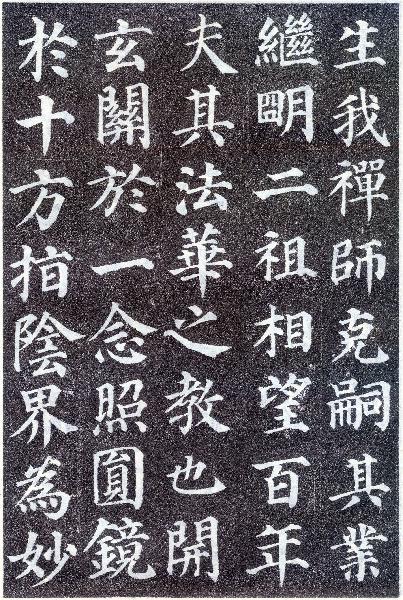 生我禪師克嗣其業
繼明二祖相望百年
夫其法華之教也開
玄關於一念照圓鏡
於十方指陰界為妙